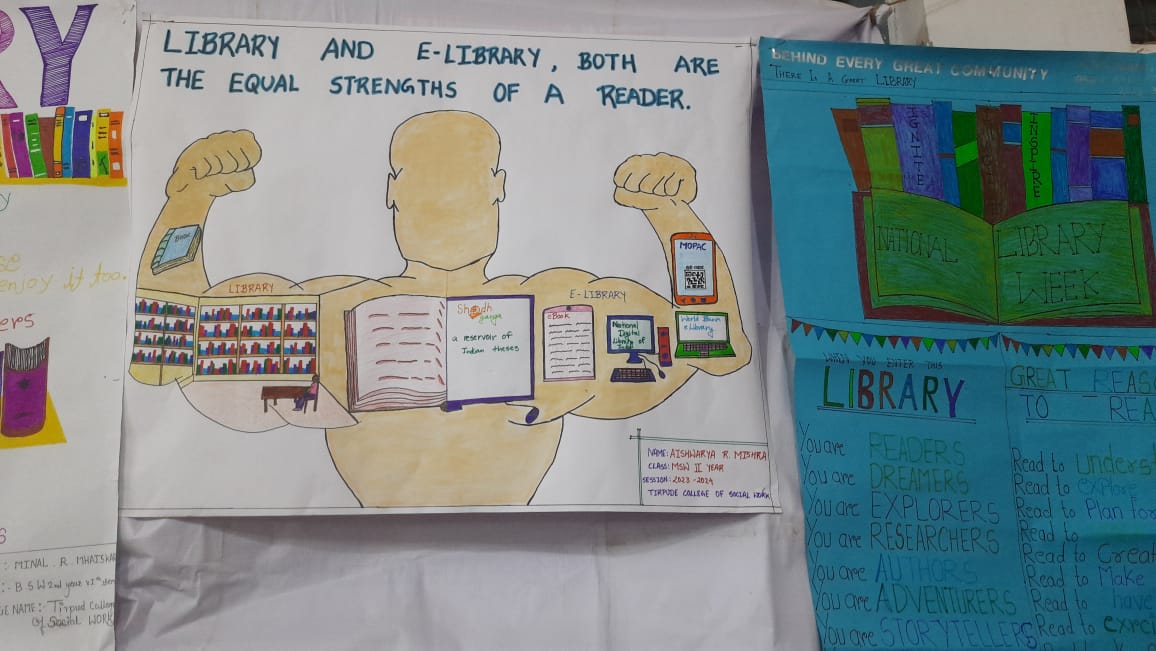 RY
enjoy it too.
ers
: MINAL. R. MHAISKAR
:- B.S.W 2nd year VIth sem
NAME:- Tirpud College
of Social WORK
LIBRARY AND E-LIBRARY, BOTH ARE
THE EQUAL STRENGTHS OF A READER.
BOOK
LIBRARY
Shodh
ganga
a reservoir of
Indian theses
E-LIBRARY
eBook
National
Digital
Library of
MOPAC
World Bank
e Library
NAME: AISHWARYA R. MISHRA
CLASS: MSW II YEAR
SESSION: 2023-2024
TIRPUDE COLLEGE OF SOCIAL WORK
BEHIND EVERY GREAT COMMUNITY
THERE IS A GREAT LIBRARY
IGNITE
INSPIRE
NATIONAL
LIBRARY
WEEK
WHEN YOU ENTER THIS
LIBRARY
You are READERS
You are DREAMERS
You are EXPLORERS
You are RESEARCHERS
You are AUTHORS
You are ADVENTURERS
You are STORYTELLERS
GREAT REAS
TO REA
Read to Underst
Read to explore
Read to Plan for
Read to
Read to Creat
Read to Make
Read to have
Read to exerci